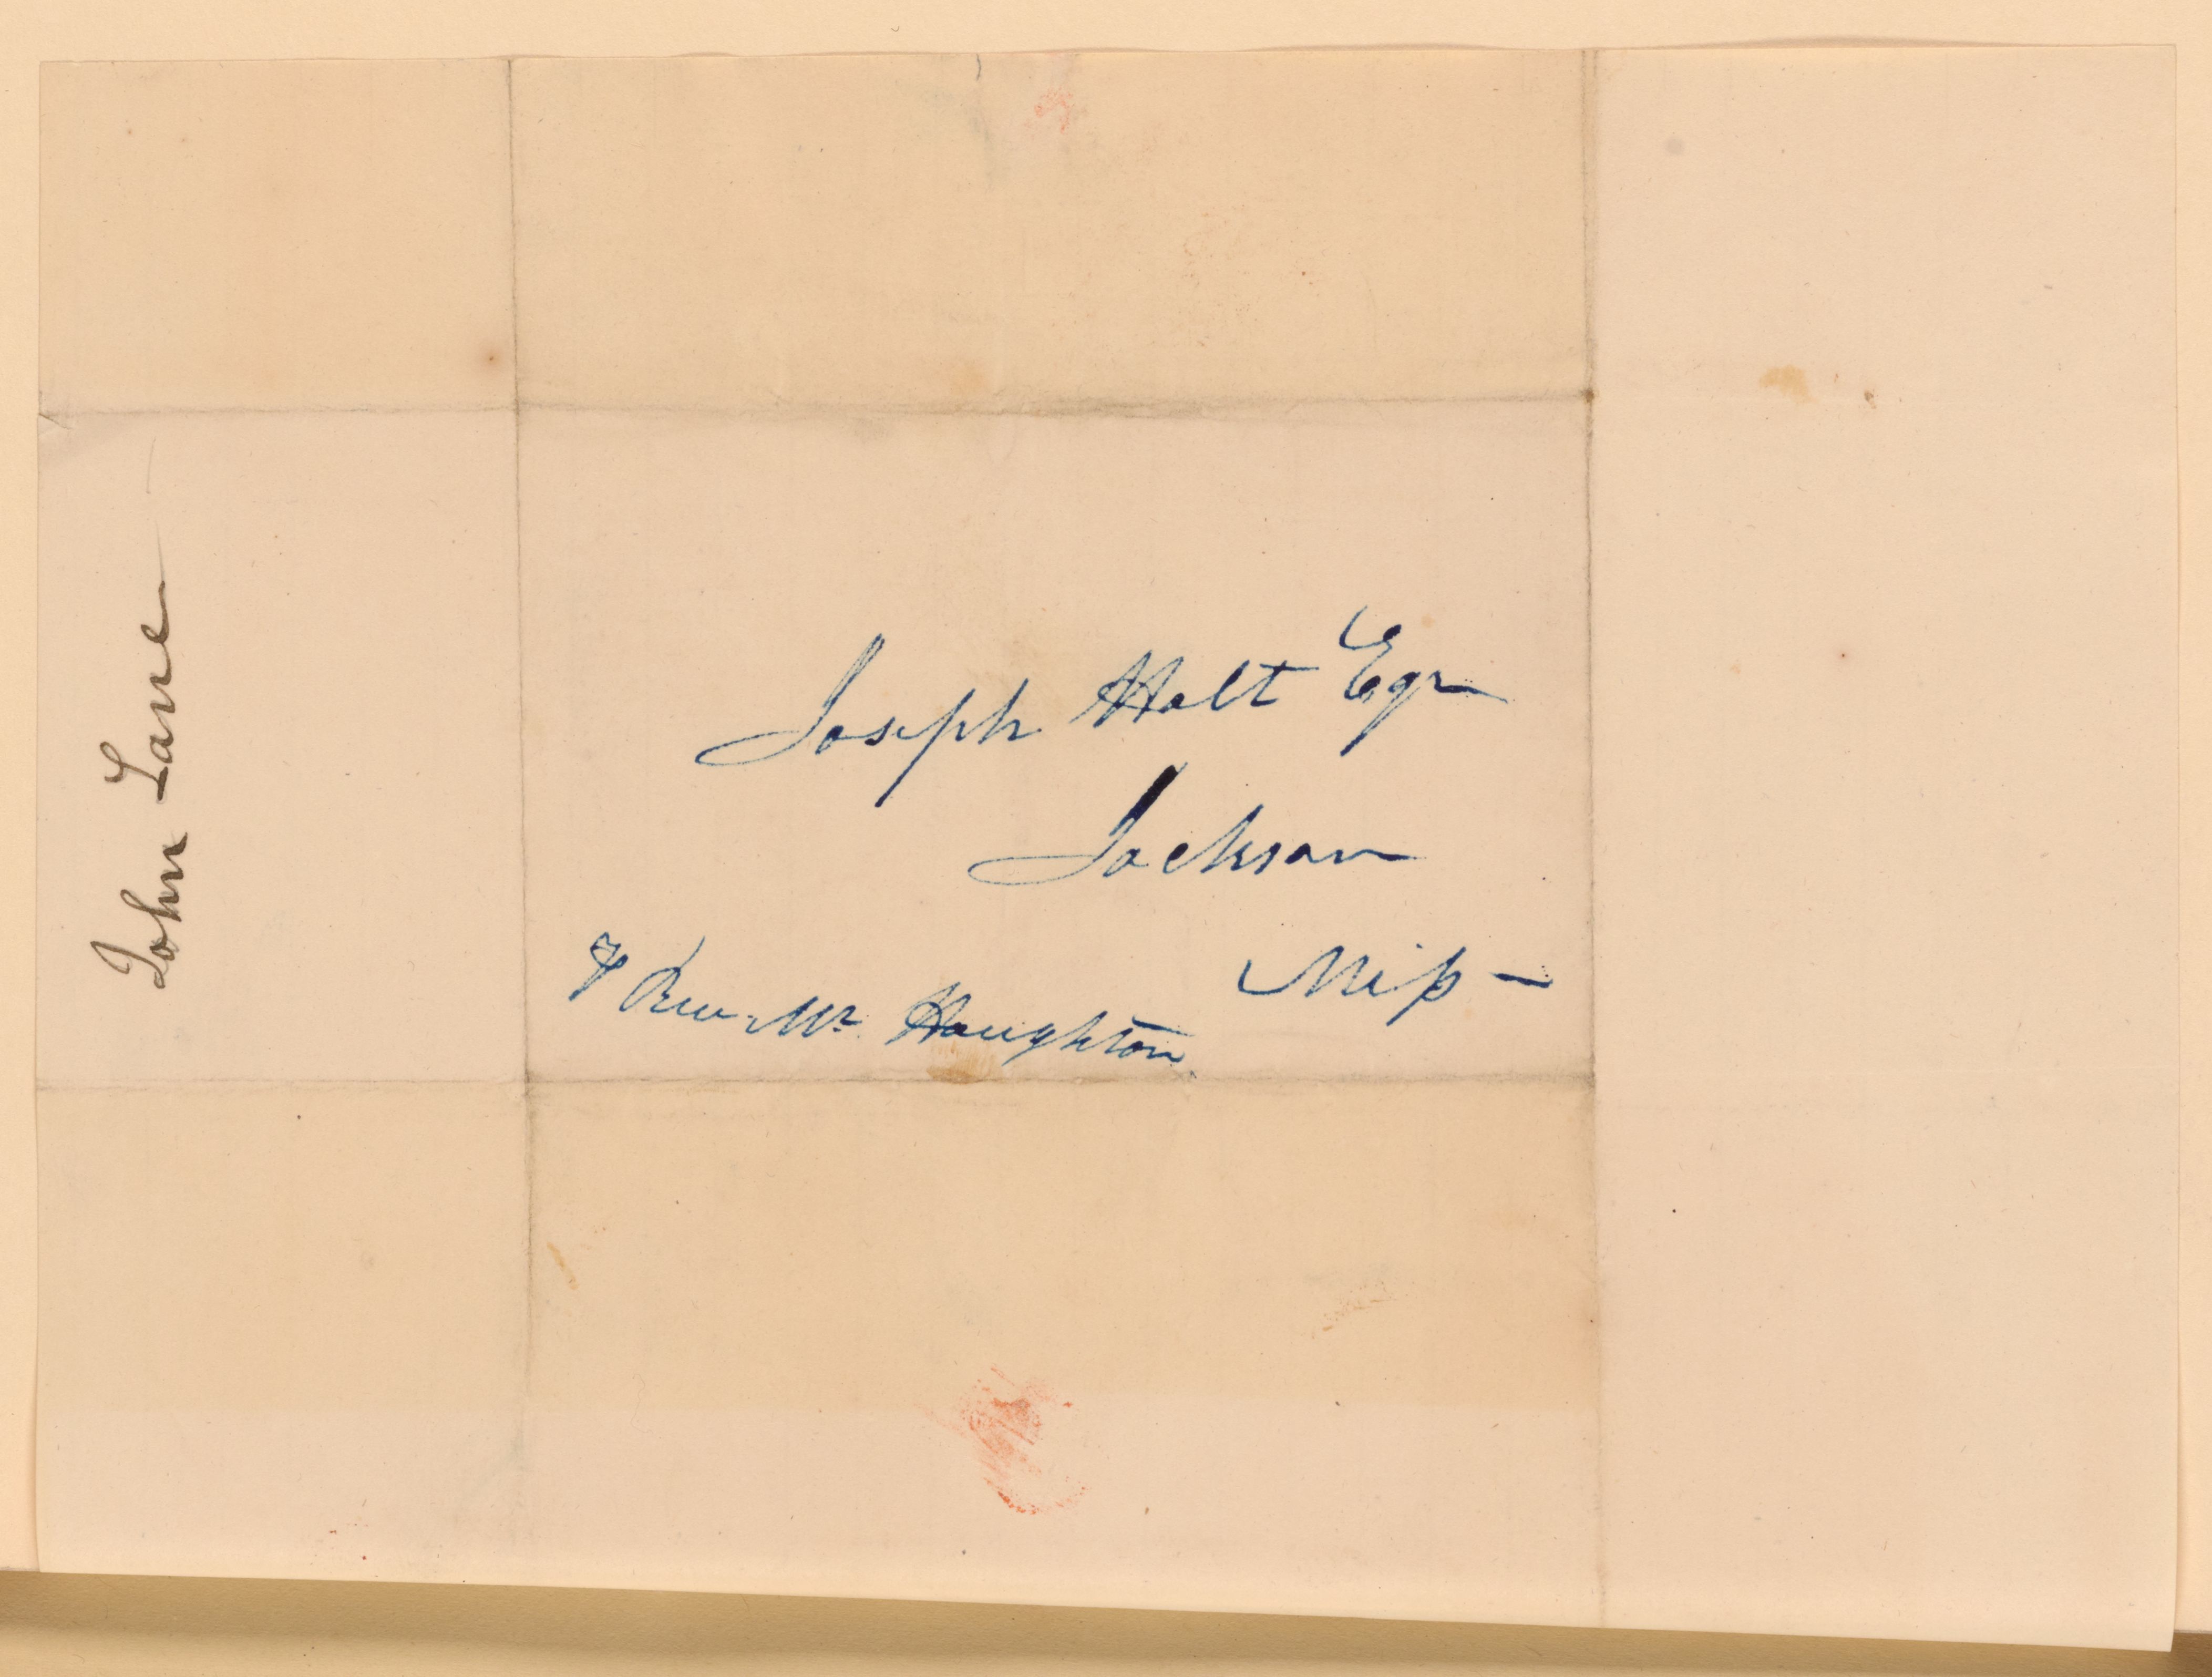 John Lane
Joseph Holt Esqr
Jackson
Miss -
Rev. Mr. Haughton.